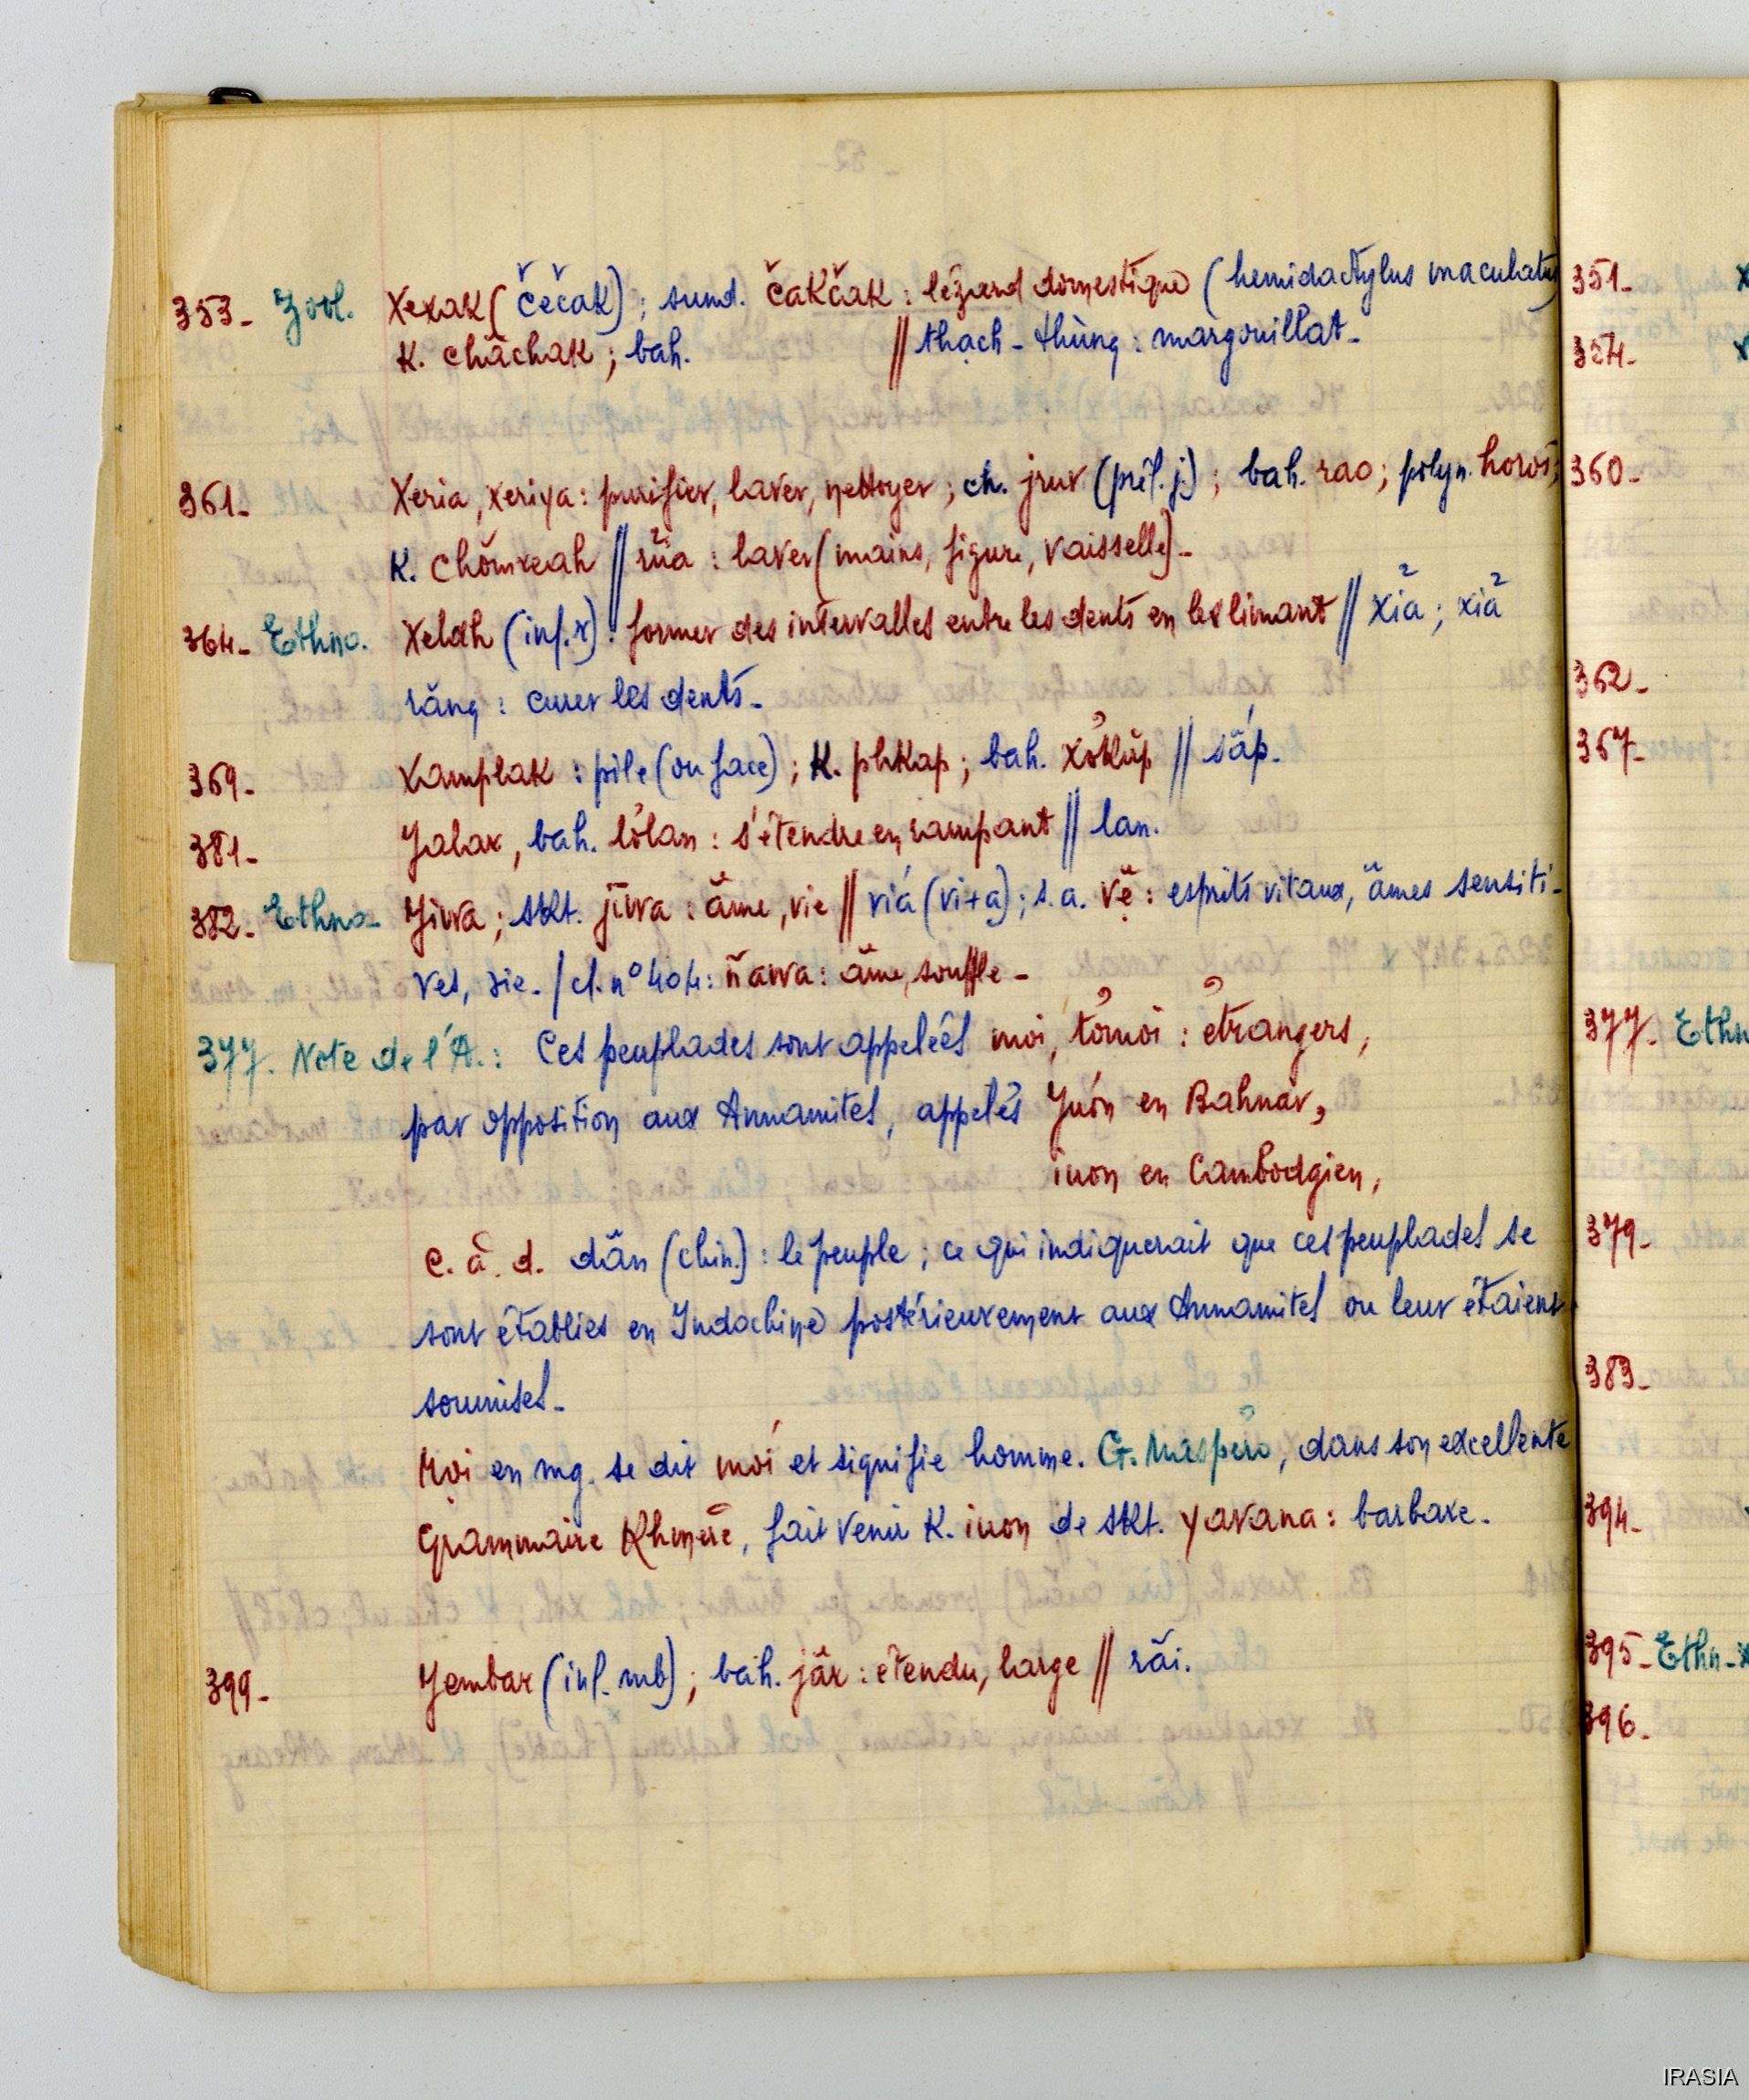 353_ Zool. Xexak (čečak); sund. čakčak : lézard domestique (hemidactylus maculatus)
K. chăchak ; bah. // thạch-thùng : margouillat_
361_ Xeria, xeriya : purifier, laver, nettoyer ; ch. jruv (préf. j.) ; bah. rao ; polyn. horoi ;
K. chŏmreah // rửa : laver (mains, figure, vaisselle)_
364_ Ethno. Xelah (inf. x) : former des intervalles entre les dents en les limant // xỉa ; xỉa
răng : curer les dents_
369_ Xamplak : pile (ou face) ; K. phkap ; bah. xơkŭp // sấp_
381_ Jalar, bah. lơlan : s'étendre en rampant // lan.
382_ Ethno_ Jiwa ; skt. jīwa : âme, vie // viá (vi+a) ; s.a. vẽ : esprits vitaux, âmes sensiti-
ves, vie_ / cf. n° 404 : ñawa : âme, souffle_
377. Note de l'A. : Ces peuplades sont appelées moi, tơmoi : étrangers,
par opposition aux Annamites, appelés Juón en Bahnar,
iuon en Cambodgien,
c. à. d. dân (chin.) : le peuple ; ce qui indiquerait que ces peuplades se
sont établies en Indochine postérieurement aux Annamites ou leur étaient
soumises_
Moi en mg. se dit mói et signifie homme. G. Maspéro, dans son excellente
Grammaire Khmère, fait venir K. iuon de skt. yavana : barbare_
399_ Jembar (inf. mb) ; bah. jăr : étendu, large // rải.
351_
354_
360_
362_
367_
377_ Ethn
379_
383_
394_
395_ Ethn_
396_
IRASIA